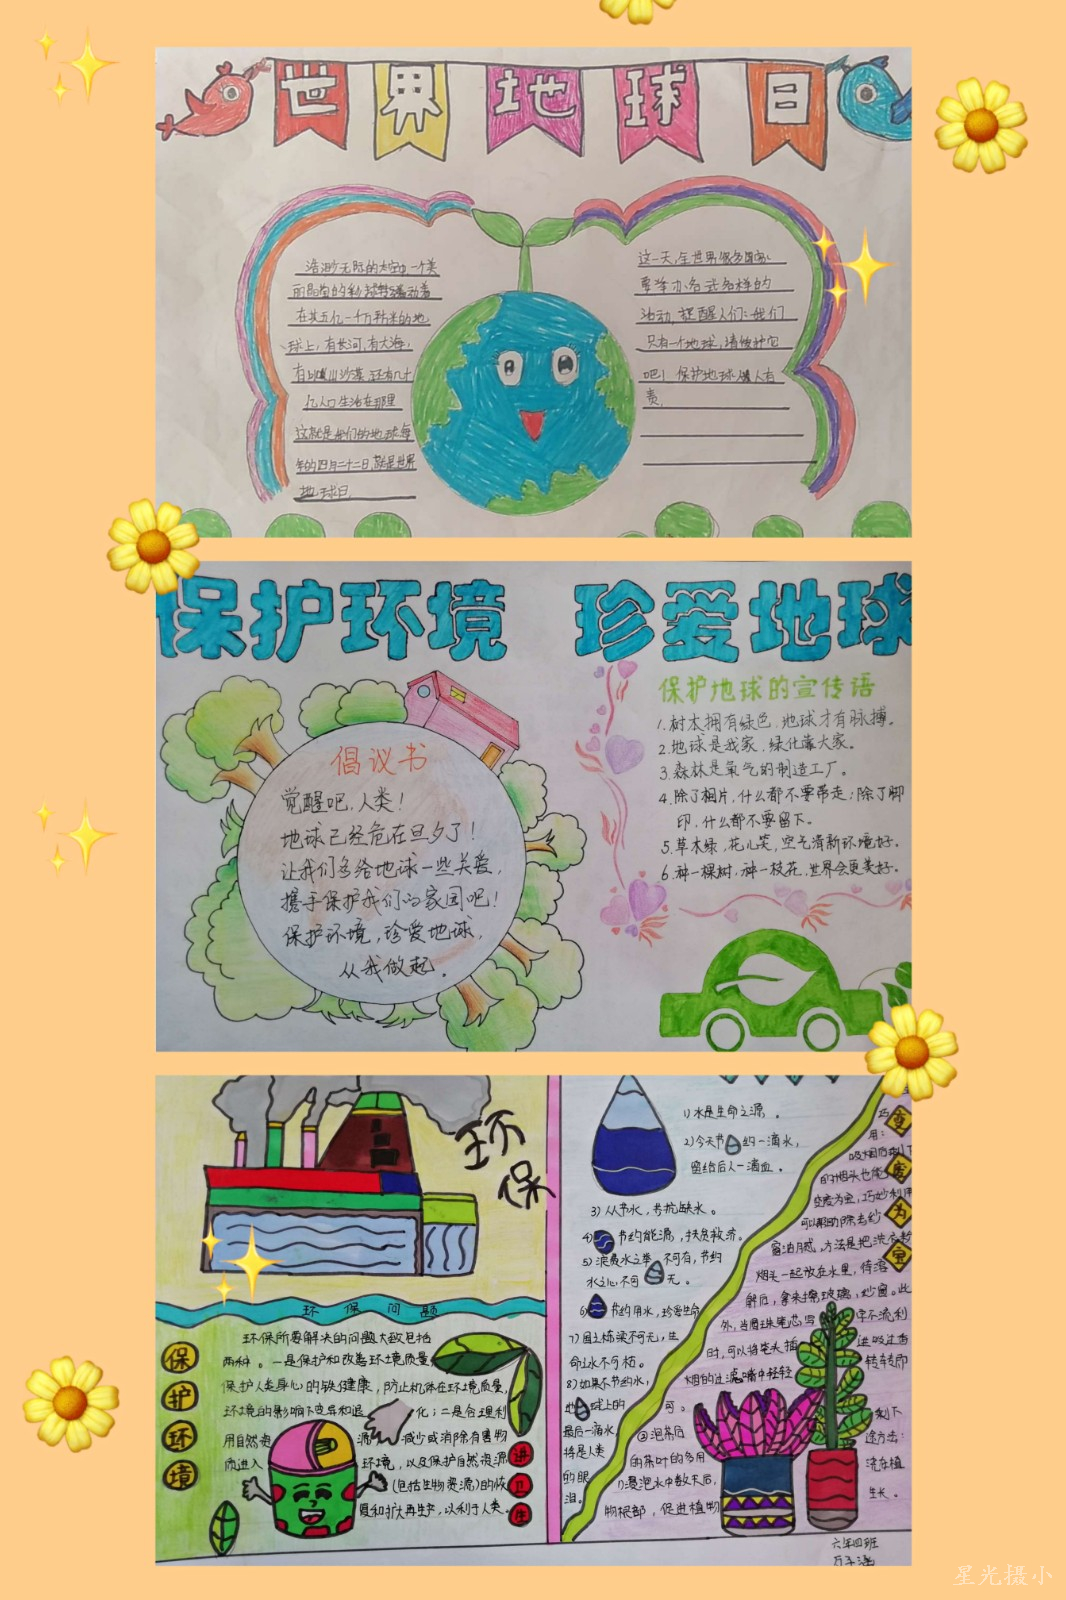 世界地球日
浩渺无际的太空中,一个美
丽晶莹的彩球转动着
在其五亿一千万平方米的地
球上,有长河,有大海,
有山 沙漠,还有几十
亿人口生活在那里
这就是我们的地球每
年的四月二十二日,就是世界
地球日
这一天,全世界很多国家
要举办各式各样的
活动,提醒人们:我们
只有一个地球,请 它
吧!保护地球,人人有
责
保护环境 珍爱地球
倡议书
觉醒吧,人类!
地球已经危在旦夕了!
让我们多给地球一些关爱,
携手保护我们的家园吧!
保护环境,珍爱地球,
从我做起。
保护地球的宣传语
1.树木拥有绿色,地球才有脉搏。
2.地球是我家,绿化靠大家。
3.森林是氧气的制造工厂。
4.除了相片,什么都不要带走;除了脚
印,什么都不要留下。
5.草木绿,花儿笑,空气清新环境好。
6.种一棵树,种一枝花,世界会更美好。
环保
环保问题
保护环境
环保所要解决的问题大致包括
两种。一是保护和改善环境质量,
保护人类身心的 健康,防止机体在环境质量,
环境的影响下变异和退 化;二是合理利
用自然资 源 减少或消除有害物
质进入 环境,以及保护自然资源
(包括生物资源)的恢
复和扩大再生产,以利于人类。
讲卫生
1)水是生命之源。
2)今天节 约一滴水,
留给后人一滴血。
3)从节水,
4) 节约能源,扶贫救济。
5)浪费水之举 不可有,节约
水之心不可 无。
6) 节约用水,珍爱生命
7)国之栋梁不可无,生
命之水不可枯。
8)如果不节约水,
地 球上的 可。
最后一滴水,
将是人类
的眼
泪。
变废为宝
用:
变废为宝,巧妙利用
可以帮助除去纱
窗油腻。方法是把洗衣粉
烟头一起放在水里,待溶
解后,拿来擦玻璃,纱窗。此
外,当圆珠笔芯写
时,可以将笔头插
烟的过滤嘴中轻轻
②泡茶后
剩下
的茶叶的多用
途方法:
1)浸泡水中数天后,
浇在植
物根部,促进植物
生长。
六年四班
星光摄小